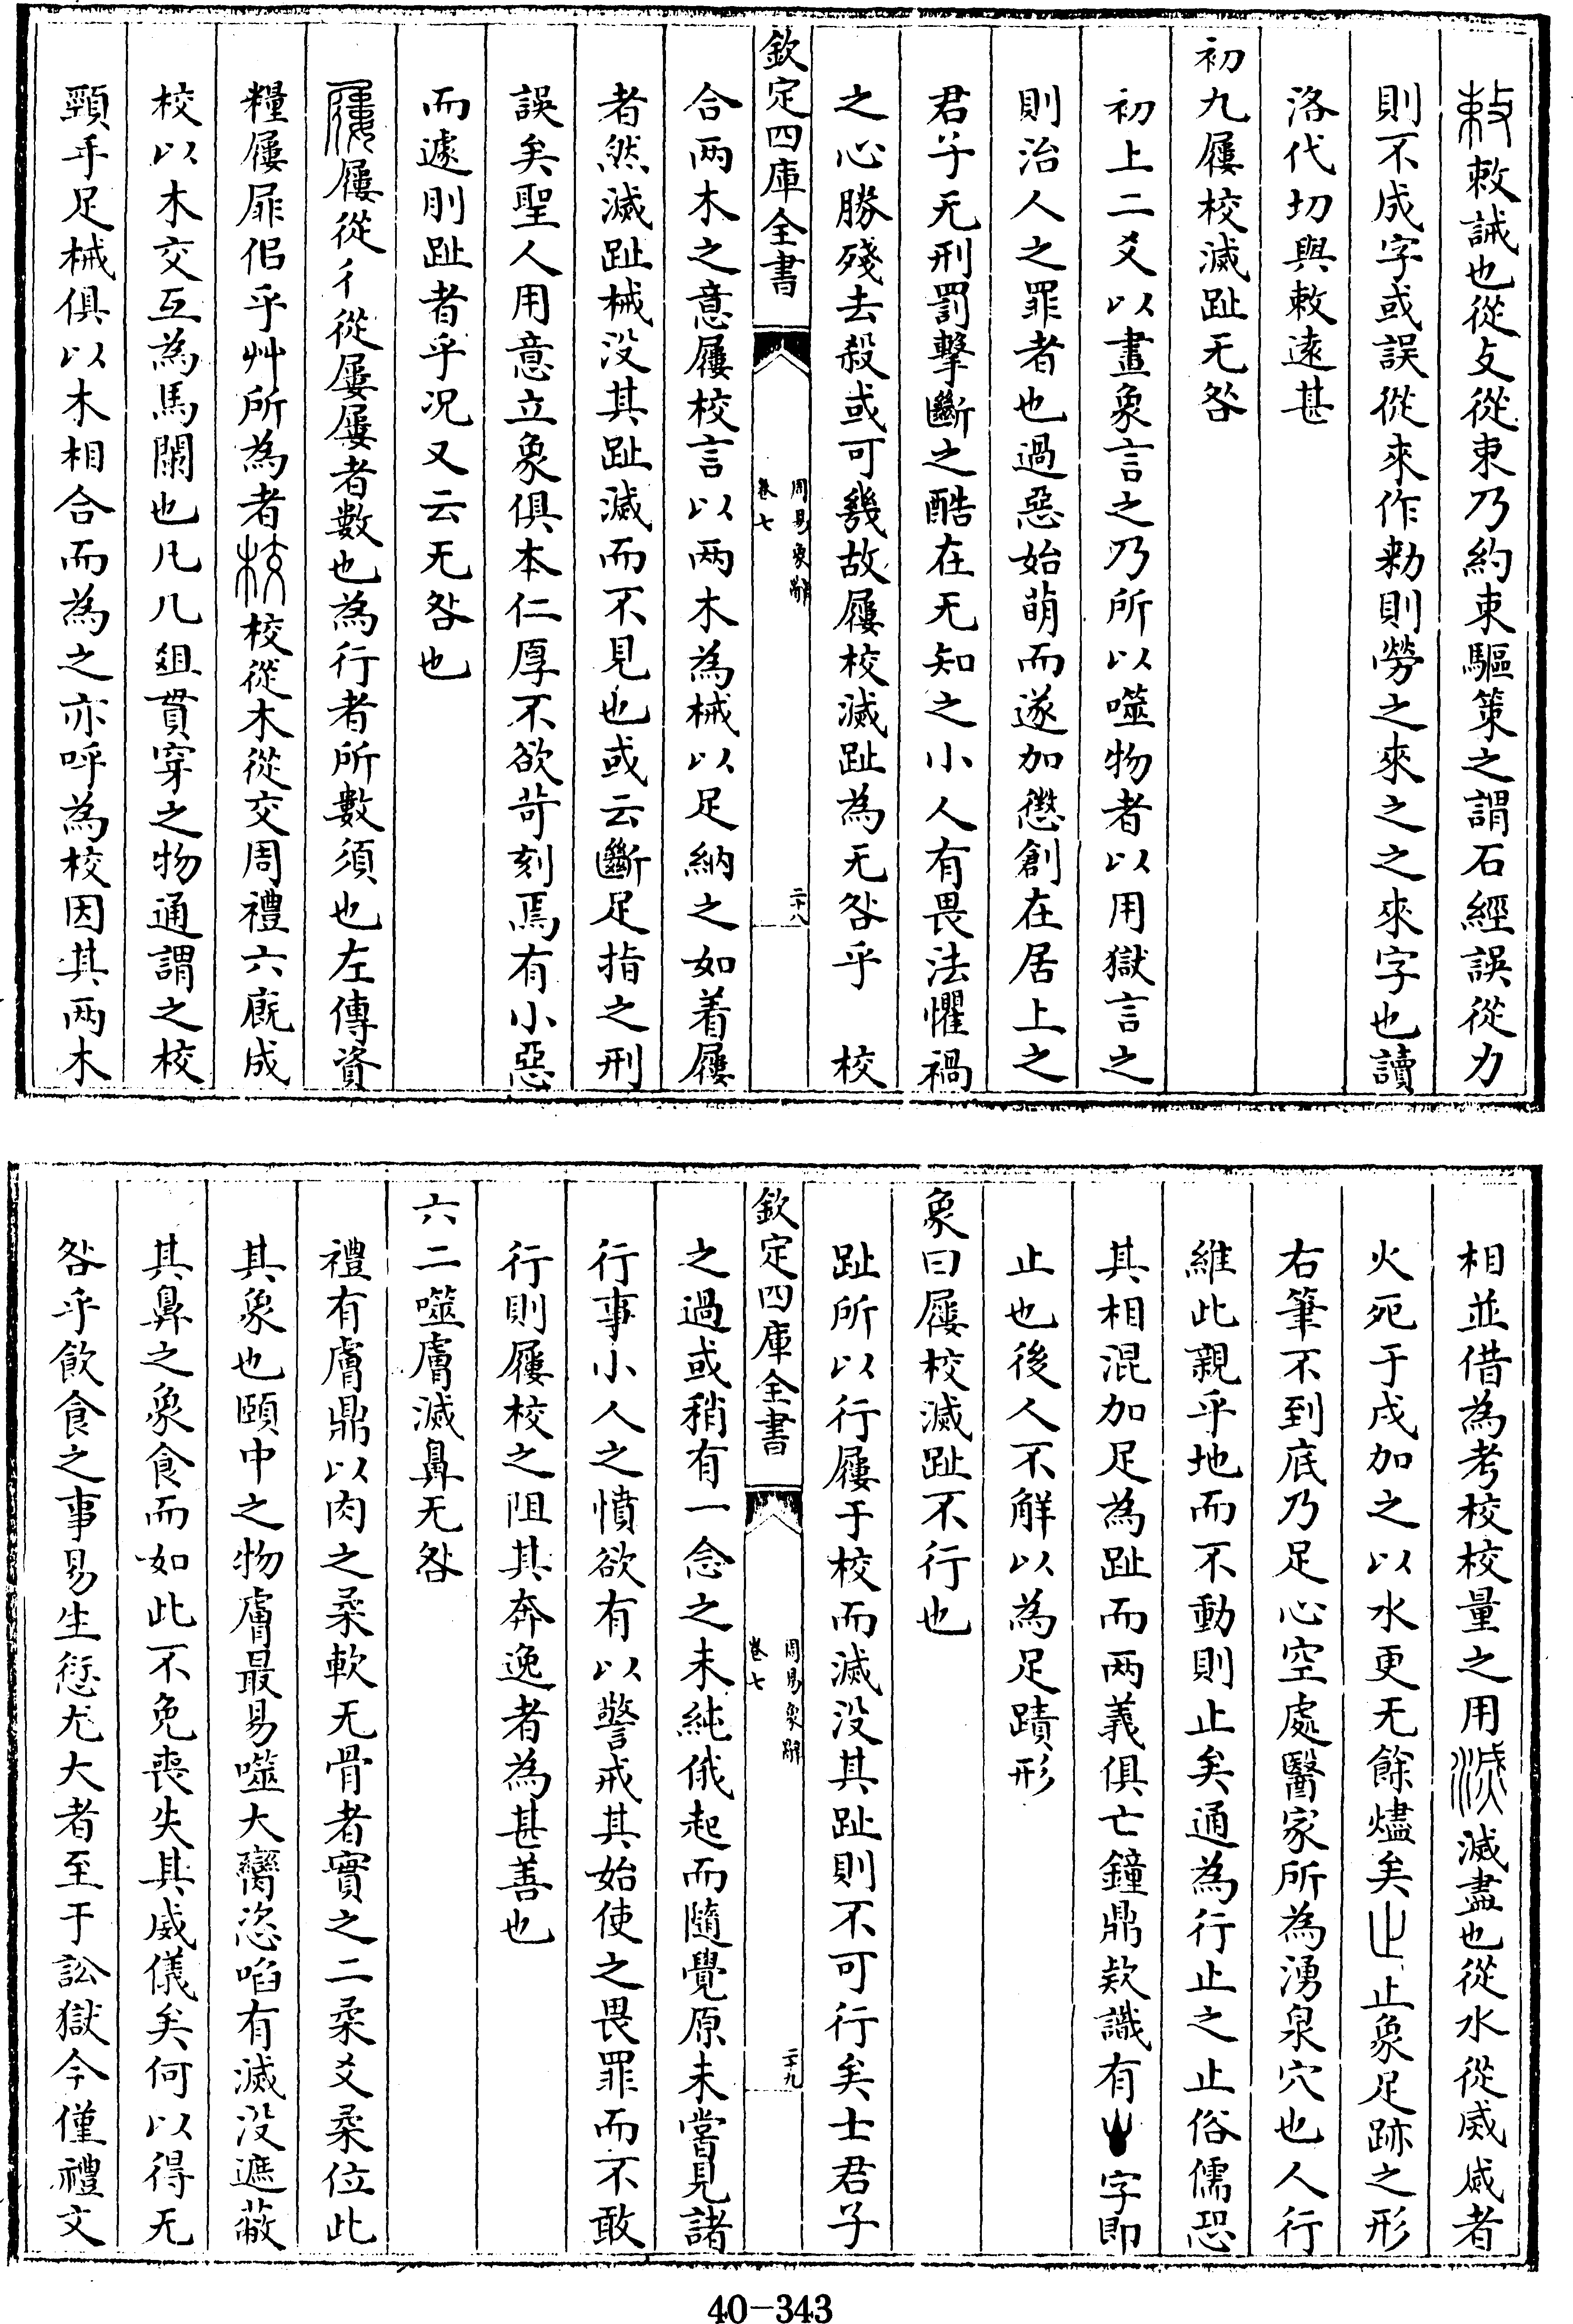 敕誡也從攴從束乃約束驅策之謂石經誤從力
則不成字或誤從來作勑則勞之來之之來字也讀
洛代切與敕逺甚
初九屨校滅趾无咎
初上二爻以畫象言之乃所以噬物者以用獄言之
則治人之罪者也過惡始萌而遂加懲創在居上之
君子无刑罰擊斷之酷在无知之小人有畏法懼禍
之心勝殘去殺或可幾故屨校滅趾為无咎乎　校
欽定四庫全書
周易象辭
卷七
二十八
合兩木之意屨校言以兩木為械以足納之如着屨
者然滅趾械没其趾滅而不見也或云斷足指之刑
誤矣聖人用意立象俱本仁厚不欲苛刻焉有小惡
而遽刖趾者乎况又云无咎也
屨從彳從屢屢者數也為行者所數須也左傳資
糧屨屝侣乎艸所為者校從木從交周禮六廐成
校以木交互為馬闌也凡几俎貫穿之物通謂之校
頸手足械俱以木相合而為之亦呼為校因其兩木
相並借為考校校量之用滅盡也從水從烕烕者
火死于戌加之以水更无餘燼矣止象足跡之形
右筆不到底乃足心空處醫家所為湧泉穴也人行
維此親乎地而不動則止矣通為行止之止俗儒恐
其相混加足為趾而兩義俱亡鐘鼎欵識有字即
止也後人不解以為足蹟形
象曰屨校滅趾不行也
趾所以行屨于校而滅没其趾則不可行矣士君子
欽定四庫全書
周易象辭
卷七
二十九
之過或稍有一念之未純俄起而隨覺原未嘗見諸
行事小人之憤欲有以警戒其始使之畏罪而不敢
行則屨校之阻其奔逸者為甚善也
六二噬膚滅鼻无咎
禮有膚鼎以肉之柔軟无骨者實之二柔爻柔位此
其象也頤中之物膚最易噬大臠恣啗有滅没遮蔽
其鼻之象食而如此不免喪失其威儀矣何以得无
咎乎飲食之事易生愆尤大者至于訟獄今僅禮文
40-343